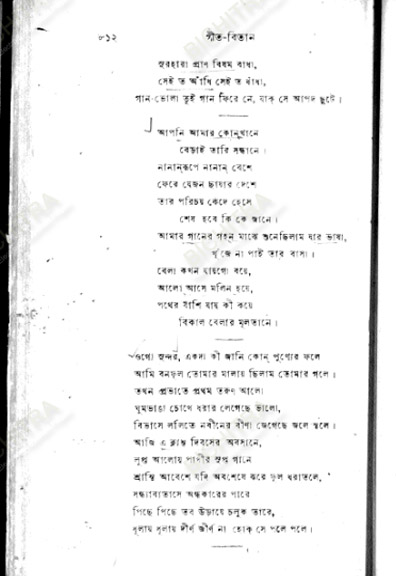 ৮১২
গীত-বিতান
সুরহারা প্রাণ বিষম বাধা,
সেই ত আঁধি সেই ত ধাঁধা,
গান-ভোলা তুই গান ফিরে নে, যাক্ সে আপদ ছুটে।
আপনি আমার কোন্‌খানে
বেড়াই তারি সন্ধানে।
নানান্‌রূপে নানান্ বেশে
ফেরে যেজন ছায়ার দেশে
তার পরিচয় কেঁদে হেসে
শেষ হবে কি কে জানে।
আমার গানের গহন মাঝে শুনেছিলাম যার ভাষা,
খুঁজে না পাই তার বাসা।
বেলা কখন যায়গো বয়ে,
আলো আসে মলিন হয়ে,
পথের বাঁশি যায় কী কয়ে
বিকাল বেলার মূলতানে।
ওগো সুন্দর, একদা কী জানি কোন্ পুণ্যের ফলে
আমি বনফুল তোমার মালায় ছিলাম তোমার গলে।
তখন প্রভাতে প্রথম তরুণ আলো
ঘুমভাঙা চোখে ধরার লেগেছে ভালো,
বিভাসে ললিতে নবীনের বীণা জেগেছে জলে স্থলে।
আজি এ ক্লান্ত দিবসের অবসানে,
লুপ্ত আলোয় পাখীর সুপ্ত গানে
শ্রান্তি আবেশে যদি অবশেষে ঝরে ফুল ধরাতলে,
সন্ধ্যাবাতাসে অন্ধকারের পারে
পিছে পিছে তব উড়ায়ে চলুক তারে,
ধূলায় ধূলায় দীর্ণ জীর্ণ না হোক্ সে পলে পলে।
BICHITRA